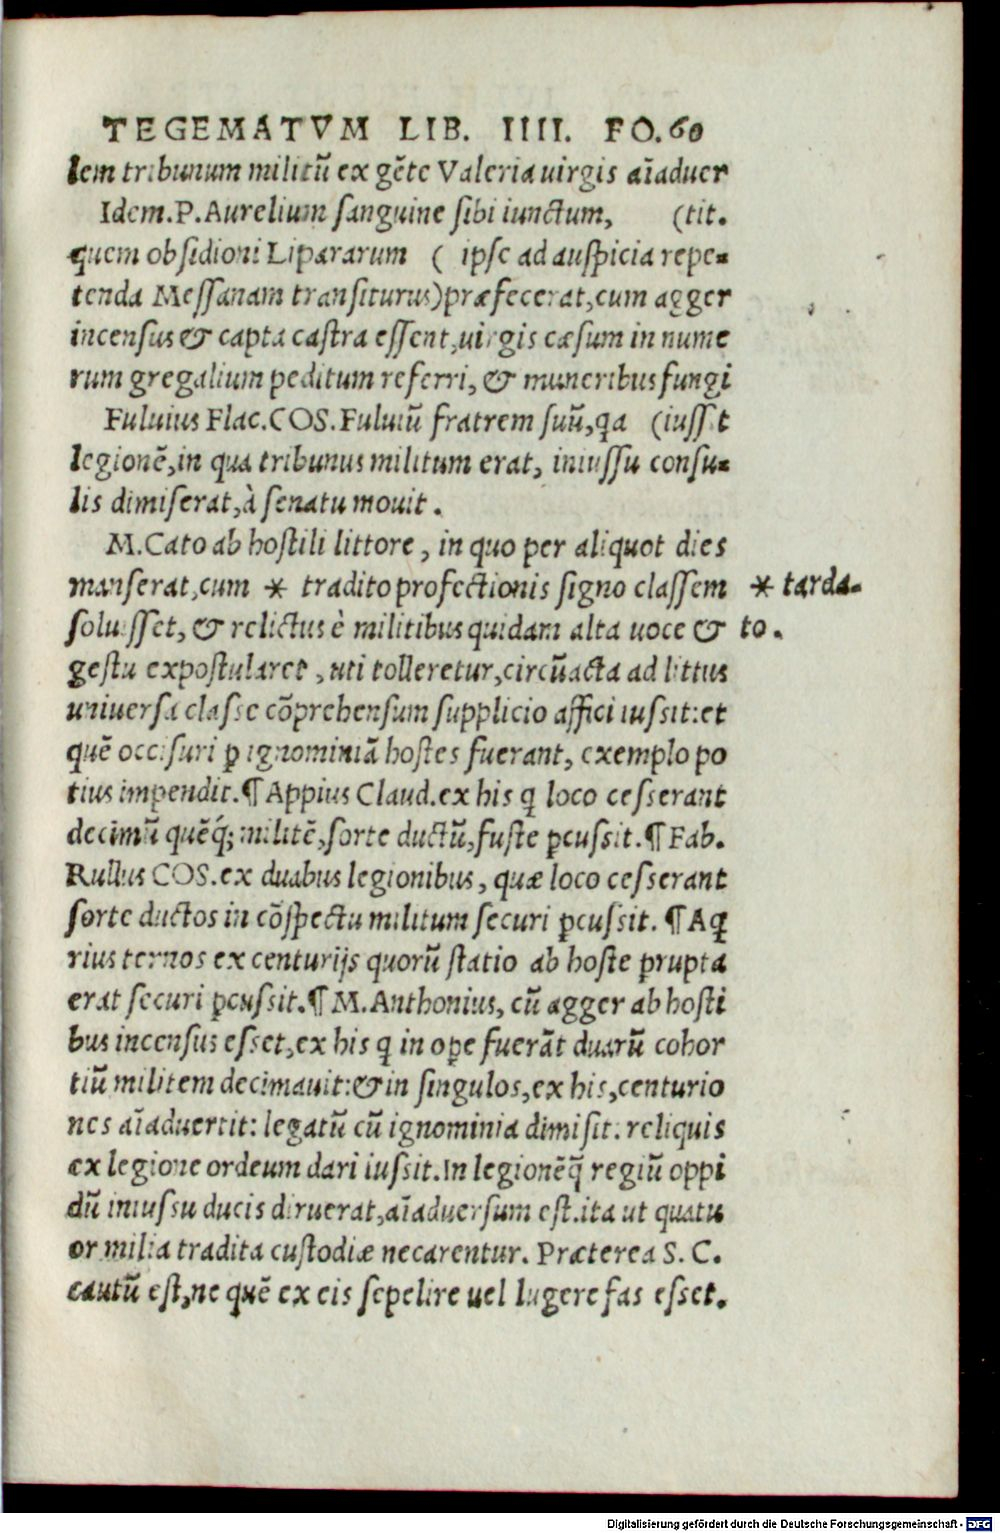 TEGEMATVM LIB. IIII. FO.60
lem tribunum militū ex gēte Valeria uirgis aīaduer
Idem.P.Aurelium sanguine sibi iunctum, (tit.
quem obsidioni Lipararum ( ipse ad auspicia repe-
tenda Messanam transiturus)præfecerat,cum agger
incensus & capta castra essent,uirgis cæsum in nume
rum gregalium peditum referri, & muneribus fungi
Fuluius Flac.COS.Fuluiū fratrem suū,qa (iussit
legionē,in qua tribunus militum erat, iniussu consu-
lis dimiserat,à senatu mouit.
M.Cato ab hostili littore, in quo per aliquot dies
manserat,cum * tradito profectionis signo classem * tarda-
soluisset, & relictus è militibus quidam alta uoce & to.
gestu expostularet, uti tolleretur,circūacta ad littus
uniuersa classe cōprehensum supplicio affici iussit:et
quē occisuri ꝑ ignominiā hostes fuerant, exemplo po
tius impendit.¶ Appius Claud.ex his q̄ loco cesserant
decimū quēq́; militē,sorte ductū,fuste ꝑcussit.¶ Fab.
Rullus COS.ex duabus legionibus, quæ loco cesserant
sorte ductos in cōspectu militum securi ꝑcussit. ¶ Aq̄
rius ternos ex centurijs quorū statio ab hoste ꝑrupta
erat securi ꝑcussit.¶ M. Anthonius, cū agger ab hosti
bus incensus esset,ex his q̄ in oꝑe fuerāt duarū cohor
tiū militem decimauit:& in singulos,ex his,centurio
nes aīaduertit: legatū cū ignominia dimisit: reliquis
ex legione ordeum dari iussit.In legionēq̄ regiū oppi
dū iniussu ducis diruerat,aīaduersum est.ita ut quatu
or milia tradita custodiæ necarentur. Præterea S. C.
cautū est,ne quē ex eis sepelire uel lugere fas esset.
Digitalisierung gefördert durch die Deutsche Forschungsgemeinschaft - DFG